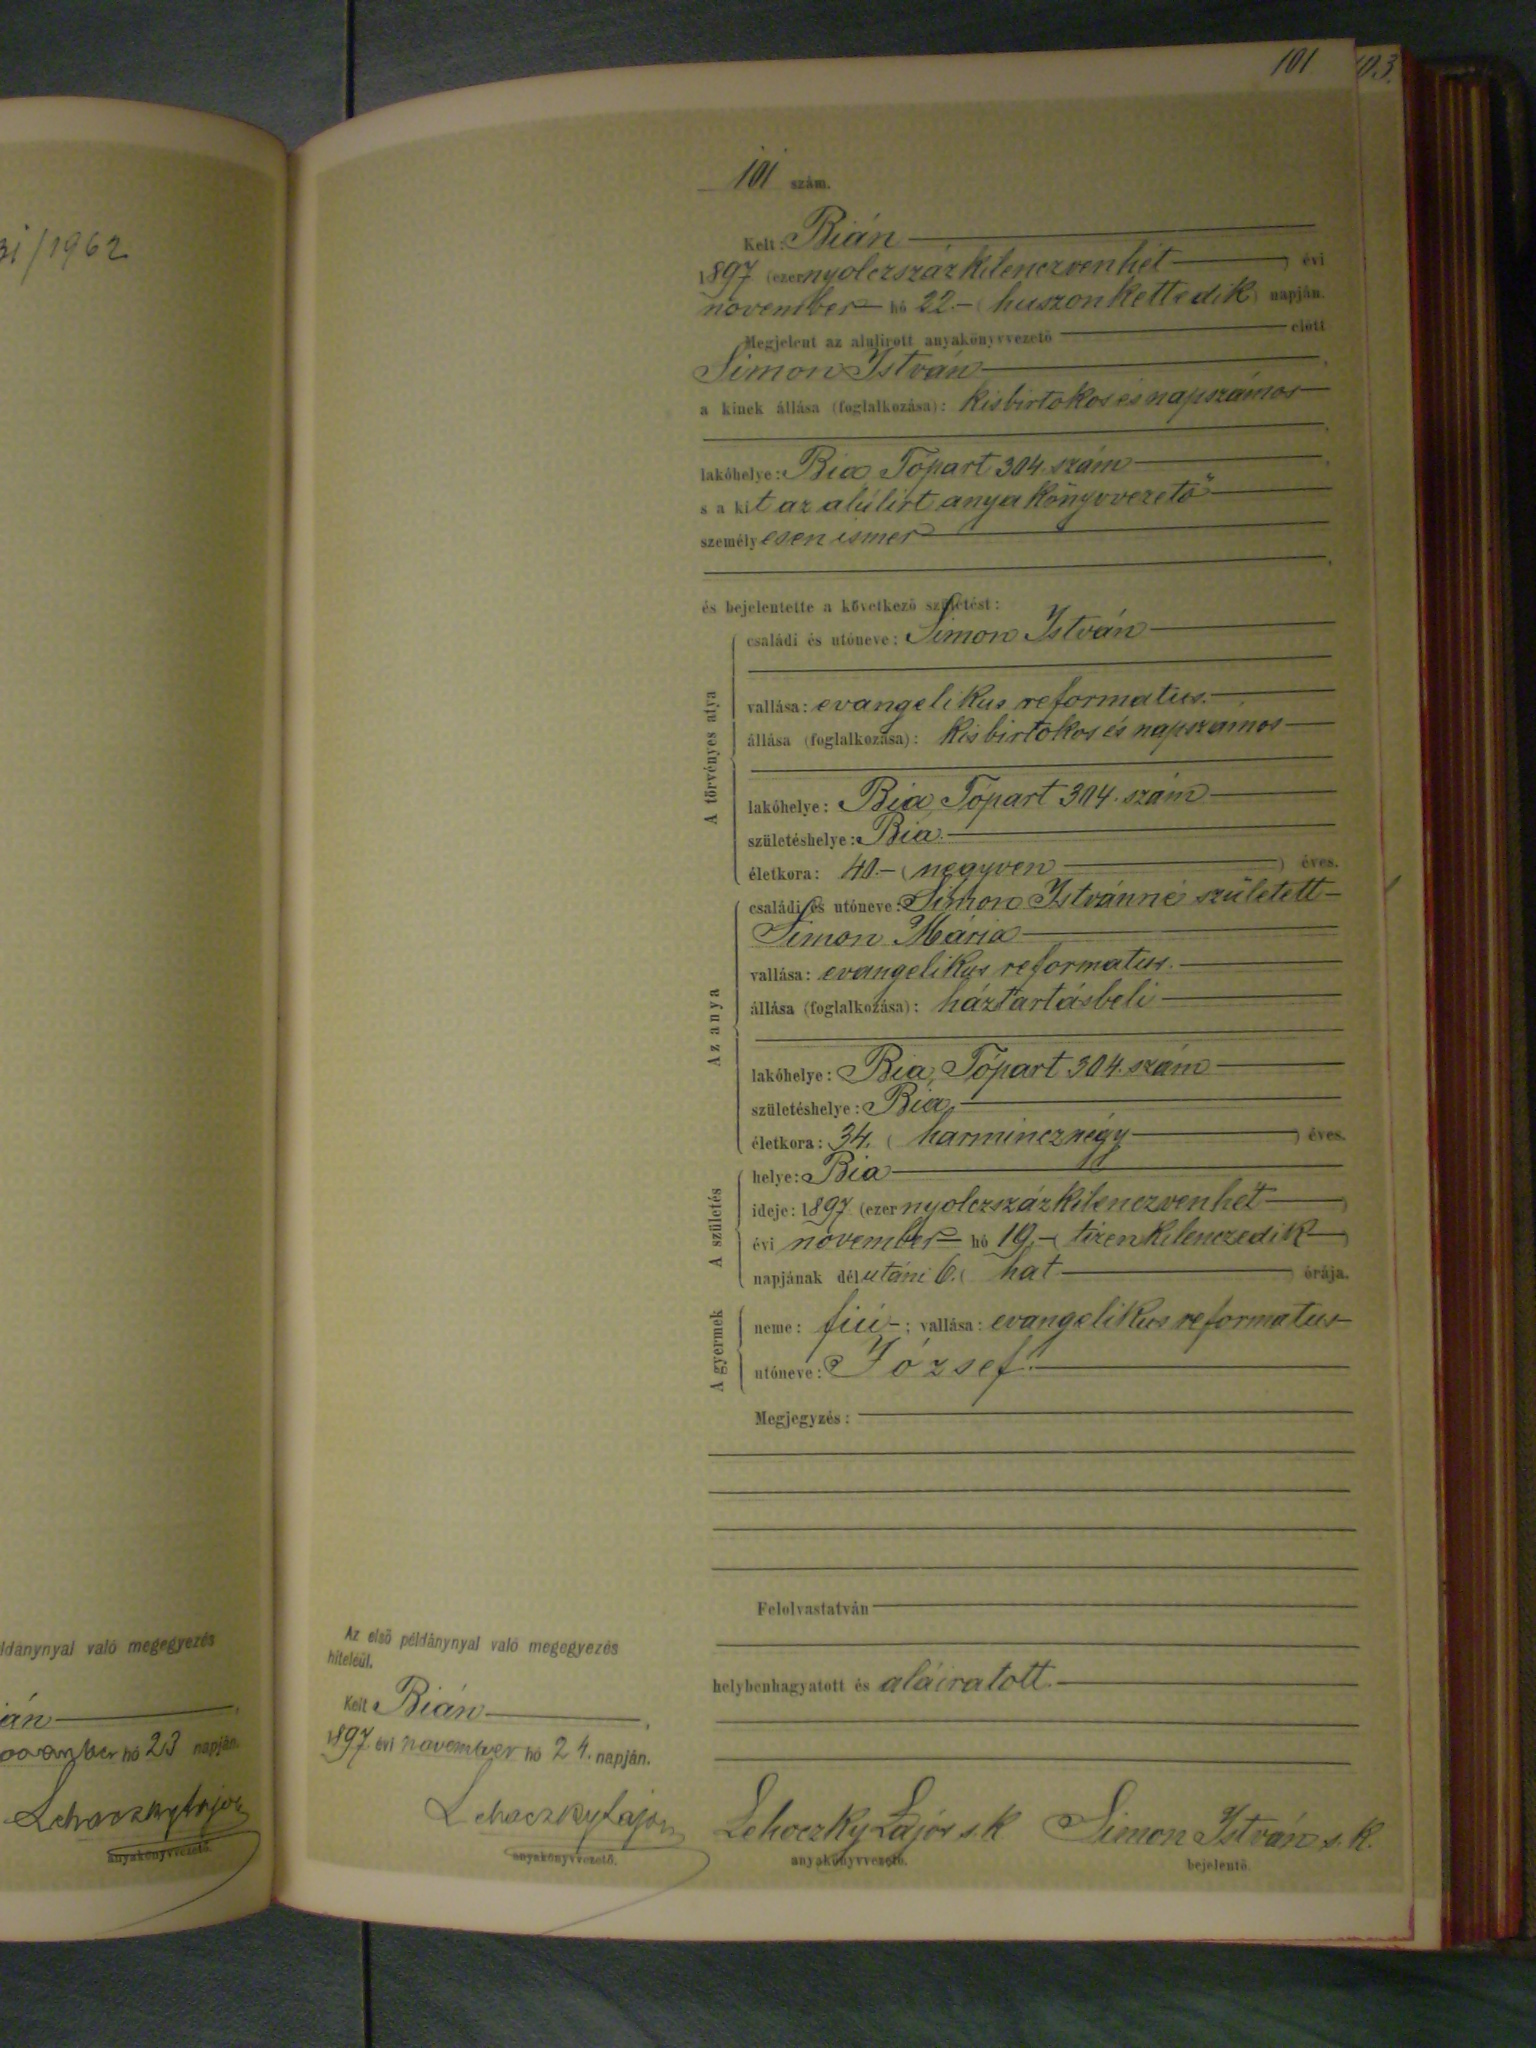 101
103.
31/1962
101 szám.
Kelt: Bián
1897 (ezernyolczszázkilenczvenhét) évi
november hó 22.- (huszonkettedik) napján.
Megjelent az alulirott anyakönyvvezető előtt
Simon István
a kinek állása (foglalkozása): kisbirtokos és napszámos
lakóhelye: Bia Tópart 304. szám
s a kit az alúlirt anyakönyvvezető
személyesen ismer
és bejelentette a következő születést:
A törvényes atya
családi és utóneve: Simon István
vallása: evangelikus reformatus.
állása (foglalkozása): kisbirtokos és napszámos
lakóhelye: Bia, Tópart 304. szám
születéshelye: Bia.
életkora: 40.- (negyven) éves.
Az anya
családi és utóneve: Simon Istvánné született
Simon Mária
vallása: evangelikus reformatus.
állása (foglalkozása): háztartásbeli
lakóhelye: Bia, Tópart 304. szám
születéshelye: Bia,
életkora: 34. (harmincznégy) éves.
A születés
helye: Bia
ideje: 1897 (ezernyolczszázkilenczvenhét)
évi november hó 19.- (tizenkilenczedik)
napjának délutáni 6. (hat) órája.
A gyermek
neme: fiú-; vallása: evangelikus reformatus
utóneve: József.
Megjegyzés:
Felolvastatván
helybenhagyatott és aláiratott.
Lehoczky Lajos s.k.
anyakönyvvezető.
Simon István s.k.
bejelentő.
Az első példánynyal való megegyezés
hiteleül.
Kelt Bián
1897 évi november hó 24. napján.
Lehoczky Lajos
anyakönyvvezető.
ldánynyal való megegyezés
ián
november hó 23 napján.
Lehoczky Lajos
anyakönyvvezető.